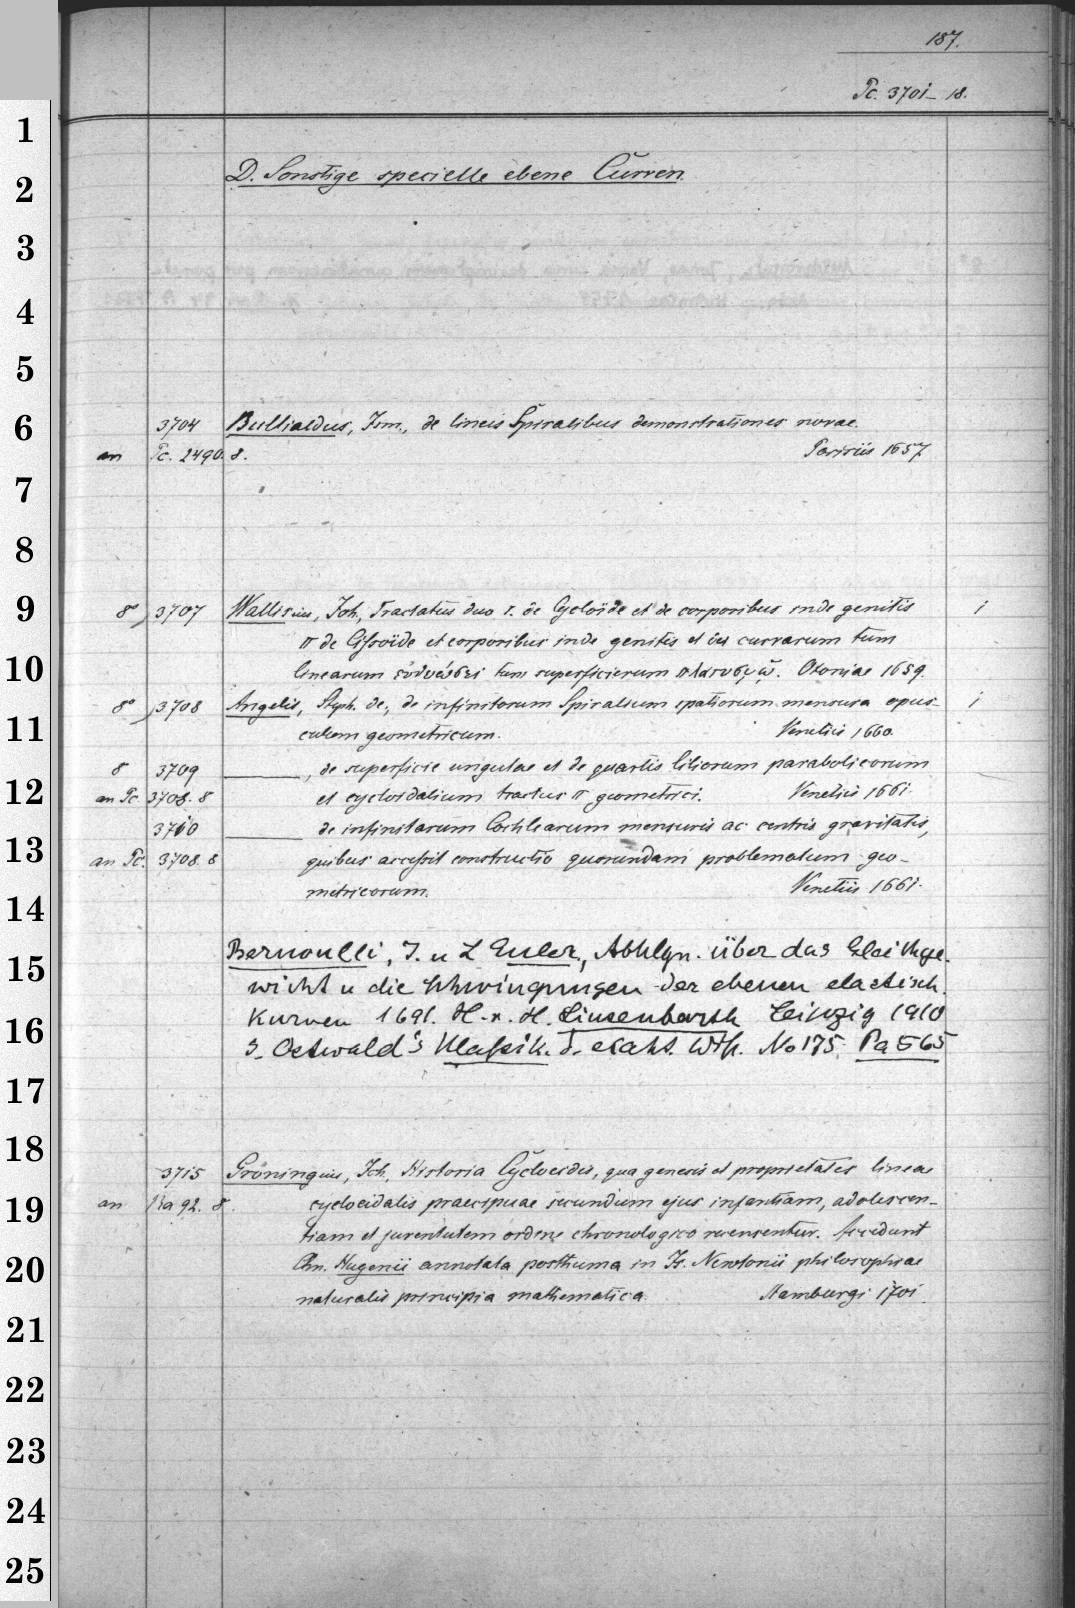 187.
Pc. 3701–18.
1
D. Sonstige specielle ebene Curven.
2
3
4
5
6 3704 Bullialdus, Ism., de lineis Spiralibus demonstrationes novae.
an Pc. 2490. 8. Parisiis 1657
7
8
9 8° 3707 Wallisius, Joh., Tractatus duo I. de Cycloide et de corporibus inde genitis 1
II de Cissoide et corporibus inde genitis et de curvarum tum
10 linearum εὐθυώσει tum superficierum πλατυσμῷ. Oxoniae 1659.
8° 3708 Angelis, Steph. de, de infinitorum Spiralium spatiorum mensura opus- 1
11 culum geometricum. Venetiis 1660.
8 3709 ———, de superficie ungulae et de quartis liliorum parabolicorum
12 an Pc 3708. 8 et cycloidalium tractus II geometrici. Venetiis 1661.
3710 ——— de infinitarum Cochlearum mensuris ac centris gravitatis,
13 an Pc. 3708. 8 quibus accessit constructio quorundam problematum geo-
metricorum. Venetiis 1661.
14
Bernoulli, J. u L Euler, Abhlgn. über das Gleichge-
15 wicht u die Schwingungen der ebenen elastisch.
Kurven 1691. H. v. H. Linsenbarth Leipzig 1910
16 s. Ostwald's Klassik. d. exakt. Wiss. No 175. Pa 565
17
18
3715 Gröningius, Joh., Historia Cycloeidis, qua genesis et proprietates lineae
19 an Ba 92. 8. cycloeidalis praecipuae secundum ejus infantiam, adolescen-
tiam et juventutem ordine chronologico recensentur. Accedunt
20 Chn. Hugenii annotata posthuma in Is. Newtonii philosophiae
naturalis principia mathematica. Hamburgi 1701.
21
22
23
24
25